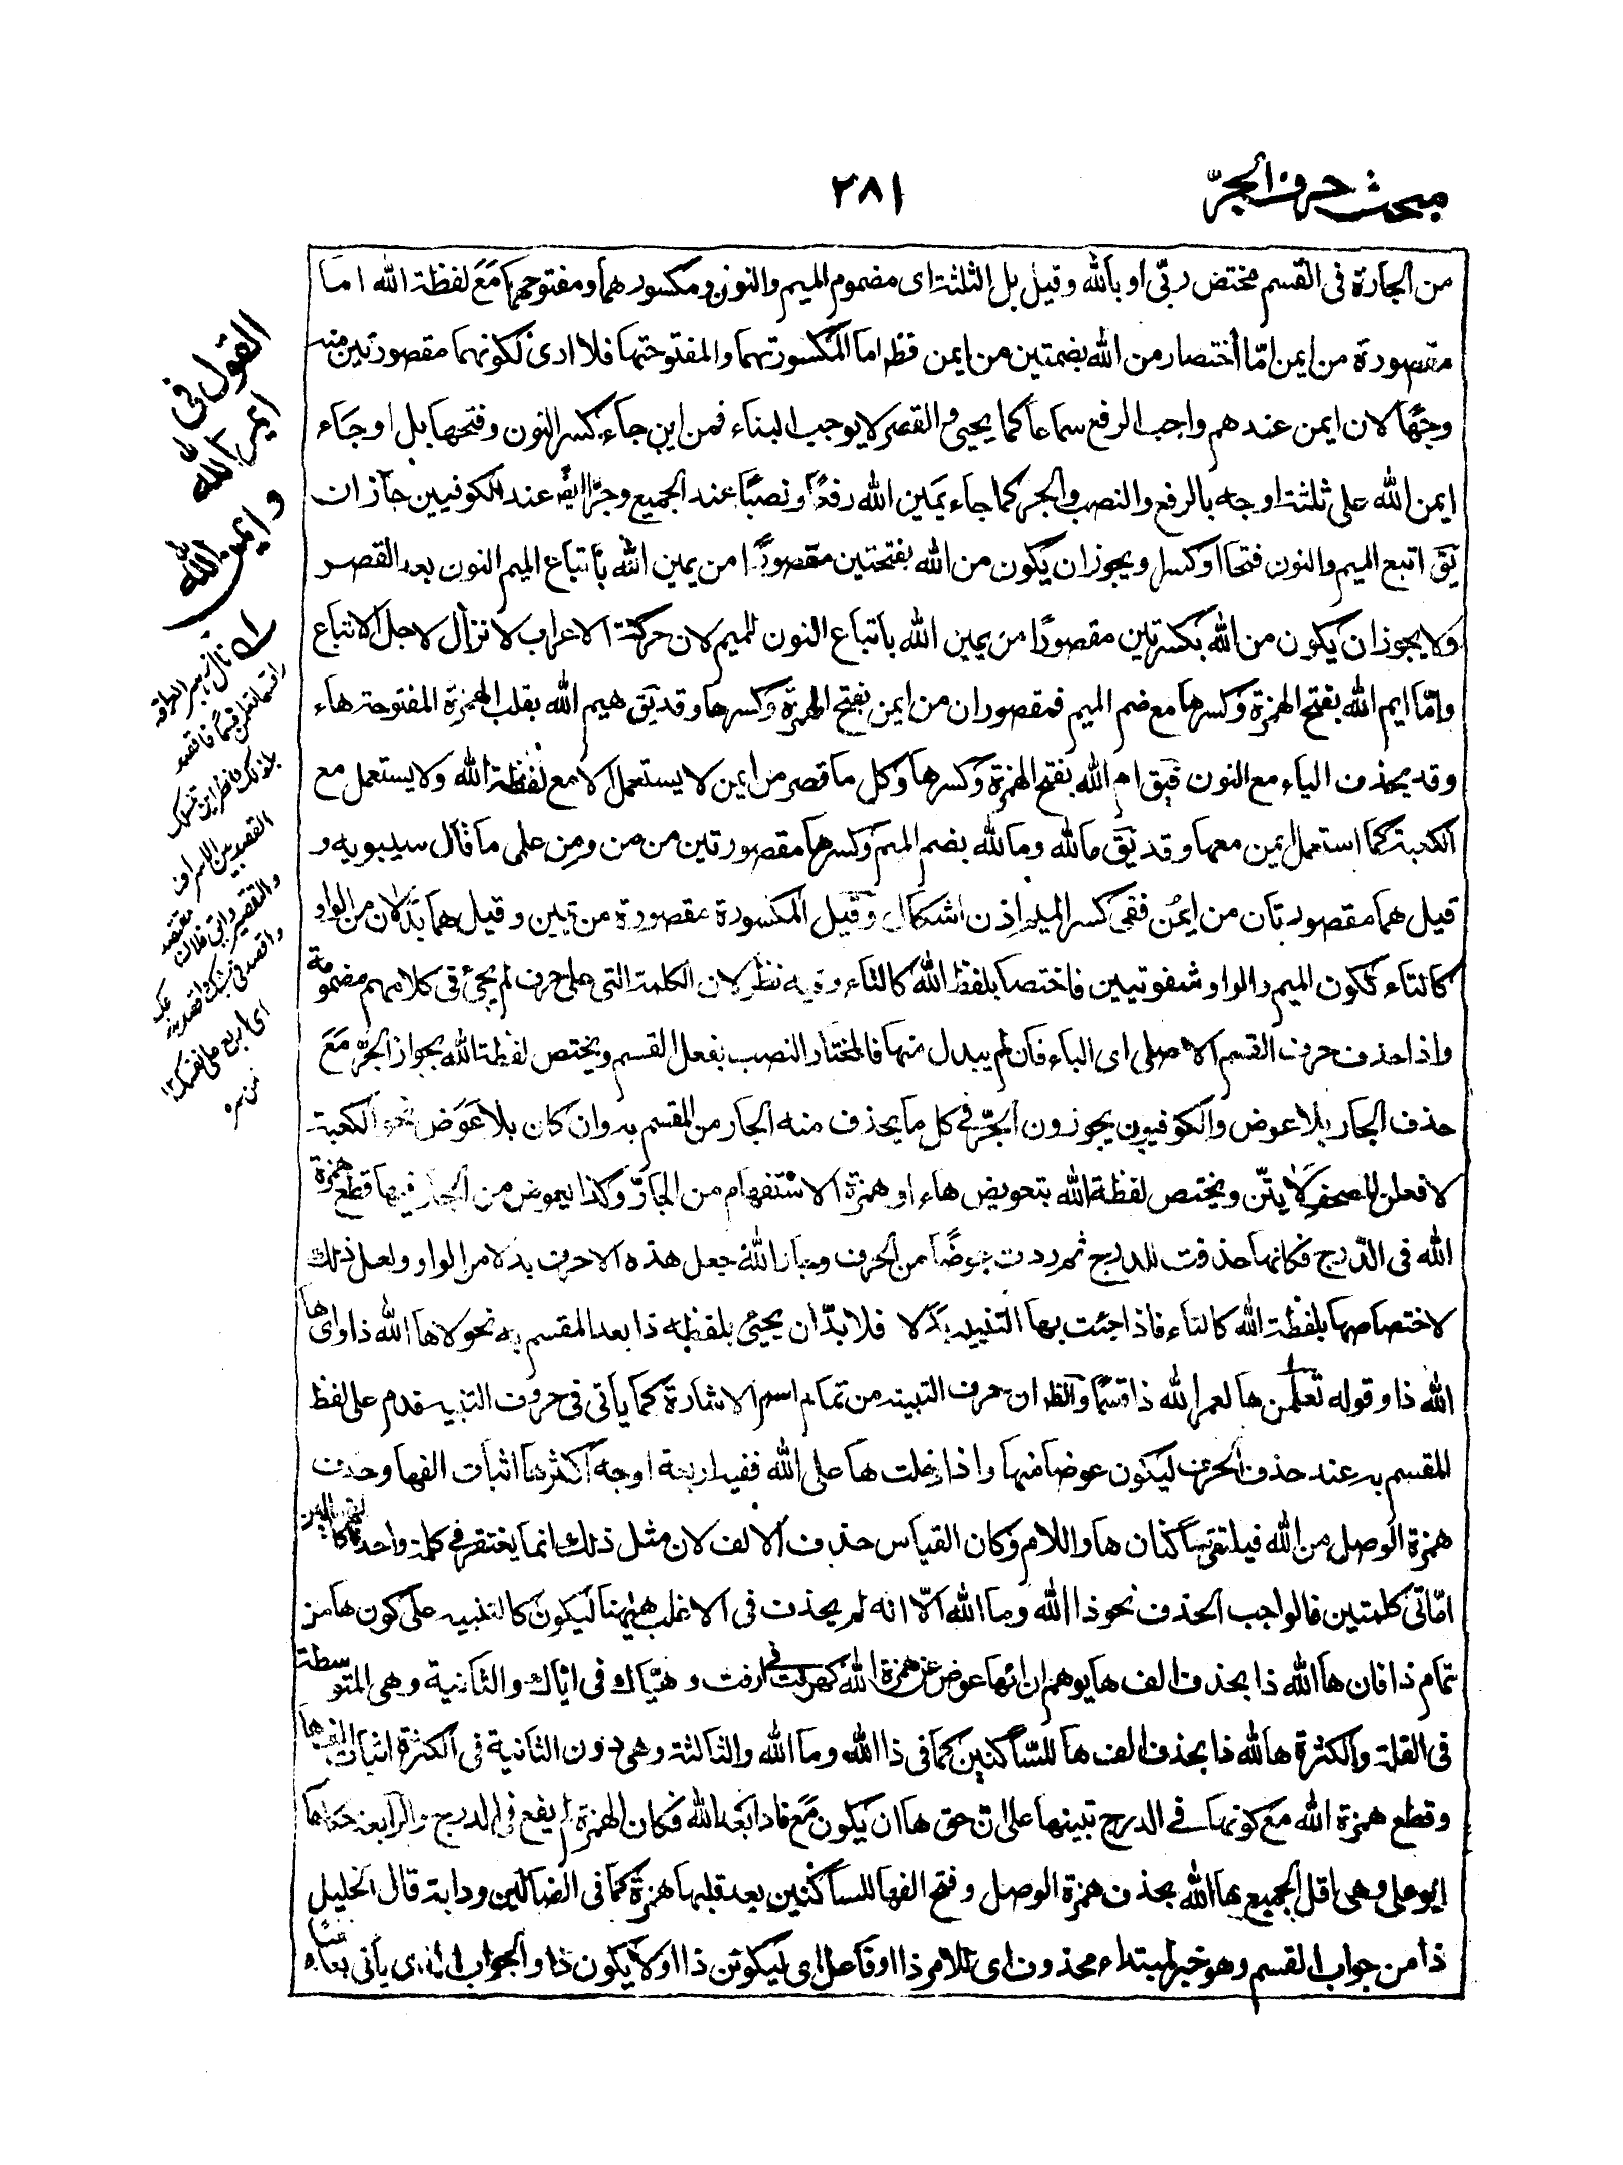 مبحث حرف الجرّ
٢٨١
من الجارة فى القسم مختص ربّى او بالله وقيل بل الثلثة اى مضموم الميم والنون ومكسورهما ومفتوحهما مَعَ لفظة الله اما
مقصورة من ايمن امّا اختصار من الله بضمتين من ايمن فظ اما المكسورتهما والمفتوحتها فلا ادرى لكونهما مقصورتين منه
وجهًا لان ايمن عندهم واجب الرفع سماعا كما يجئ و القصر لا يوجب البناء فمن اين جاء كسر النون وفتحها بل اوجَاء
ايمن الله على ثلثة اوجه بالرفع والنصب والجر كما جاء يمَين الله رفعًا ونصبًا عند الجميع وجرًّا ايضً عند الكوفيين جاز ان
يَق اتبع الميم والنون فتحا اوكسرا ويجوز ان يكون من الله بفتحتين مقصورًا من يمين الله باتباع الميم النون بعد القصر
ولا يجوز ان يكون من الله بكسرتين مقصورًا من يمين الله باتباع النون للميم لان حركة الاعراب لا تزال لاجل الاتباع
وامّا ايم الله بفتح الهمزة وكسرها مع ضم الميم فمقصوران من ايمن بفتح الهمزة وكسرها وقد يَق هيم الله بقلب الهمزة المفتوحة هاء
وقد يحذف الياء مع النون فيَق ام الله بفتح الهمزة وكسرها وكل ما قصر من ايمن لا يستعمل الا مع لفظة الله ولا يستعمل مع
الكعبة كما استعمل ايمن معها وقد يَق مالله ومالله بضم الميم وكسرها مقصورتين من من ومِن على ما قال سيبويه و
قيل هما مقصورتان من ايمُن ففى كسر الميم اذن اشكال وقيل المكسورة مقصورة من يمين وقيل هما بَدَلان من الواو
كالتاء لكون الميم والواو شفوتيين فاختصا بلفظ الله كالتاء وفيه نظر لان الكلمة التى على حرف لم يجئ فى كلامهم مضمومة
واذا حذف حرف القسم الاصلى اى الباء فان لم يبدل منها فالمختار النصب بفعل القسم ويختص لفظة الله بجواز الجرّ مَعَ
حذف الجار بلا عوض والكوفيون يجوزون الجرّ فى كل ما يحذف منه الجار من المقسم به وان كان بلا عَوَض نحو الكعبة
لافعلن والمصحف لايتّن ويختص لفظة الله بتعويض هاء او همزة الاستفهام من الجارّ وكذا يعوض من الجار فيها قطع همزة
الله فى الدّرج فكانها حذفت للدرج ثم ردت عوضًا من الحرف وجار الله جعل هذه الاحرف بدلا من الواو ولعل ذلك
لاختصاصها بلفظة الله كالتاء فاذا جئت بها التنبيه بَدَلا فلابدّ ان يجئ بلفظه ذا بعد المقسم به نحو لاها الله ذا واى ها
الله ذا وقوله تعلّمن ها لعمر الله ذا قسمًا والظ ان حرف التنبيه من تمام اسم الاشارة كما ياتى فى حروف التنبيه قدم على لفظ
المقسم به عند حذف الحرف ليكون عوضا منها واذا دخلت ها على الله ففيه اربعة اوجه اكثرها اثبات الفها وحذف
همزة الوصل من الله فيلتقى ساكنان ها واللام وكان القياس حذف الالف لان مثل ذلك انما يغتفر فى كلمة واحدة كالضالين
امّا فى كلمتين فالواجب الحذف نحو ذا الله وما الله الّا انه لم يحذف فى الاغلب ههنا ليكون كالتنبيه على كون ها من
تمام ذا فان ها الله ذا بحذف الف ها يوهم ان الهاء عوض عن همزة الله كهرقت فى ارقت وهيّاك فى ايّاك والثانية وهى المتوسطة
فى القلة والكثرة هالله ذا بحذف الف ها للسّاكنين كما فى ذا الله وما الله والثالثة وهى دون الثانية فى الكثرة اثبات الف ها
وقطع همزة الله مَعَ كونها فى الدرج تنبيها على انّ حق ها ان يكون مَع ذا بعد الله فكان الهمزة لم يقع فى الدرج والرابعة حكاها
ابو على وهى اقل الجميع هاالله بحذف همزة الوصل وفتح الفها للساكنين بعد قلبها همزة كما فى الضالين ودابة قال الخليل
ذا من جواب القسم وهو خبر مبتداء محذوف اى للامر ذا او فاعل اى ليكونن ذا او لا يكون ذا والجواب الذى ياتى بعده
القول فى
ايمن الله
و ايم الله
فاقصد
القصد بين الاسراف
والتقتير
اى اربع على نفسك ١٢